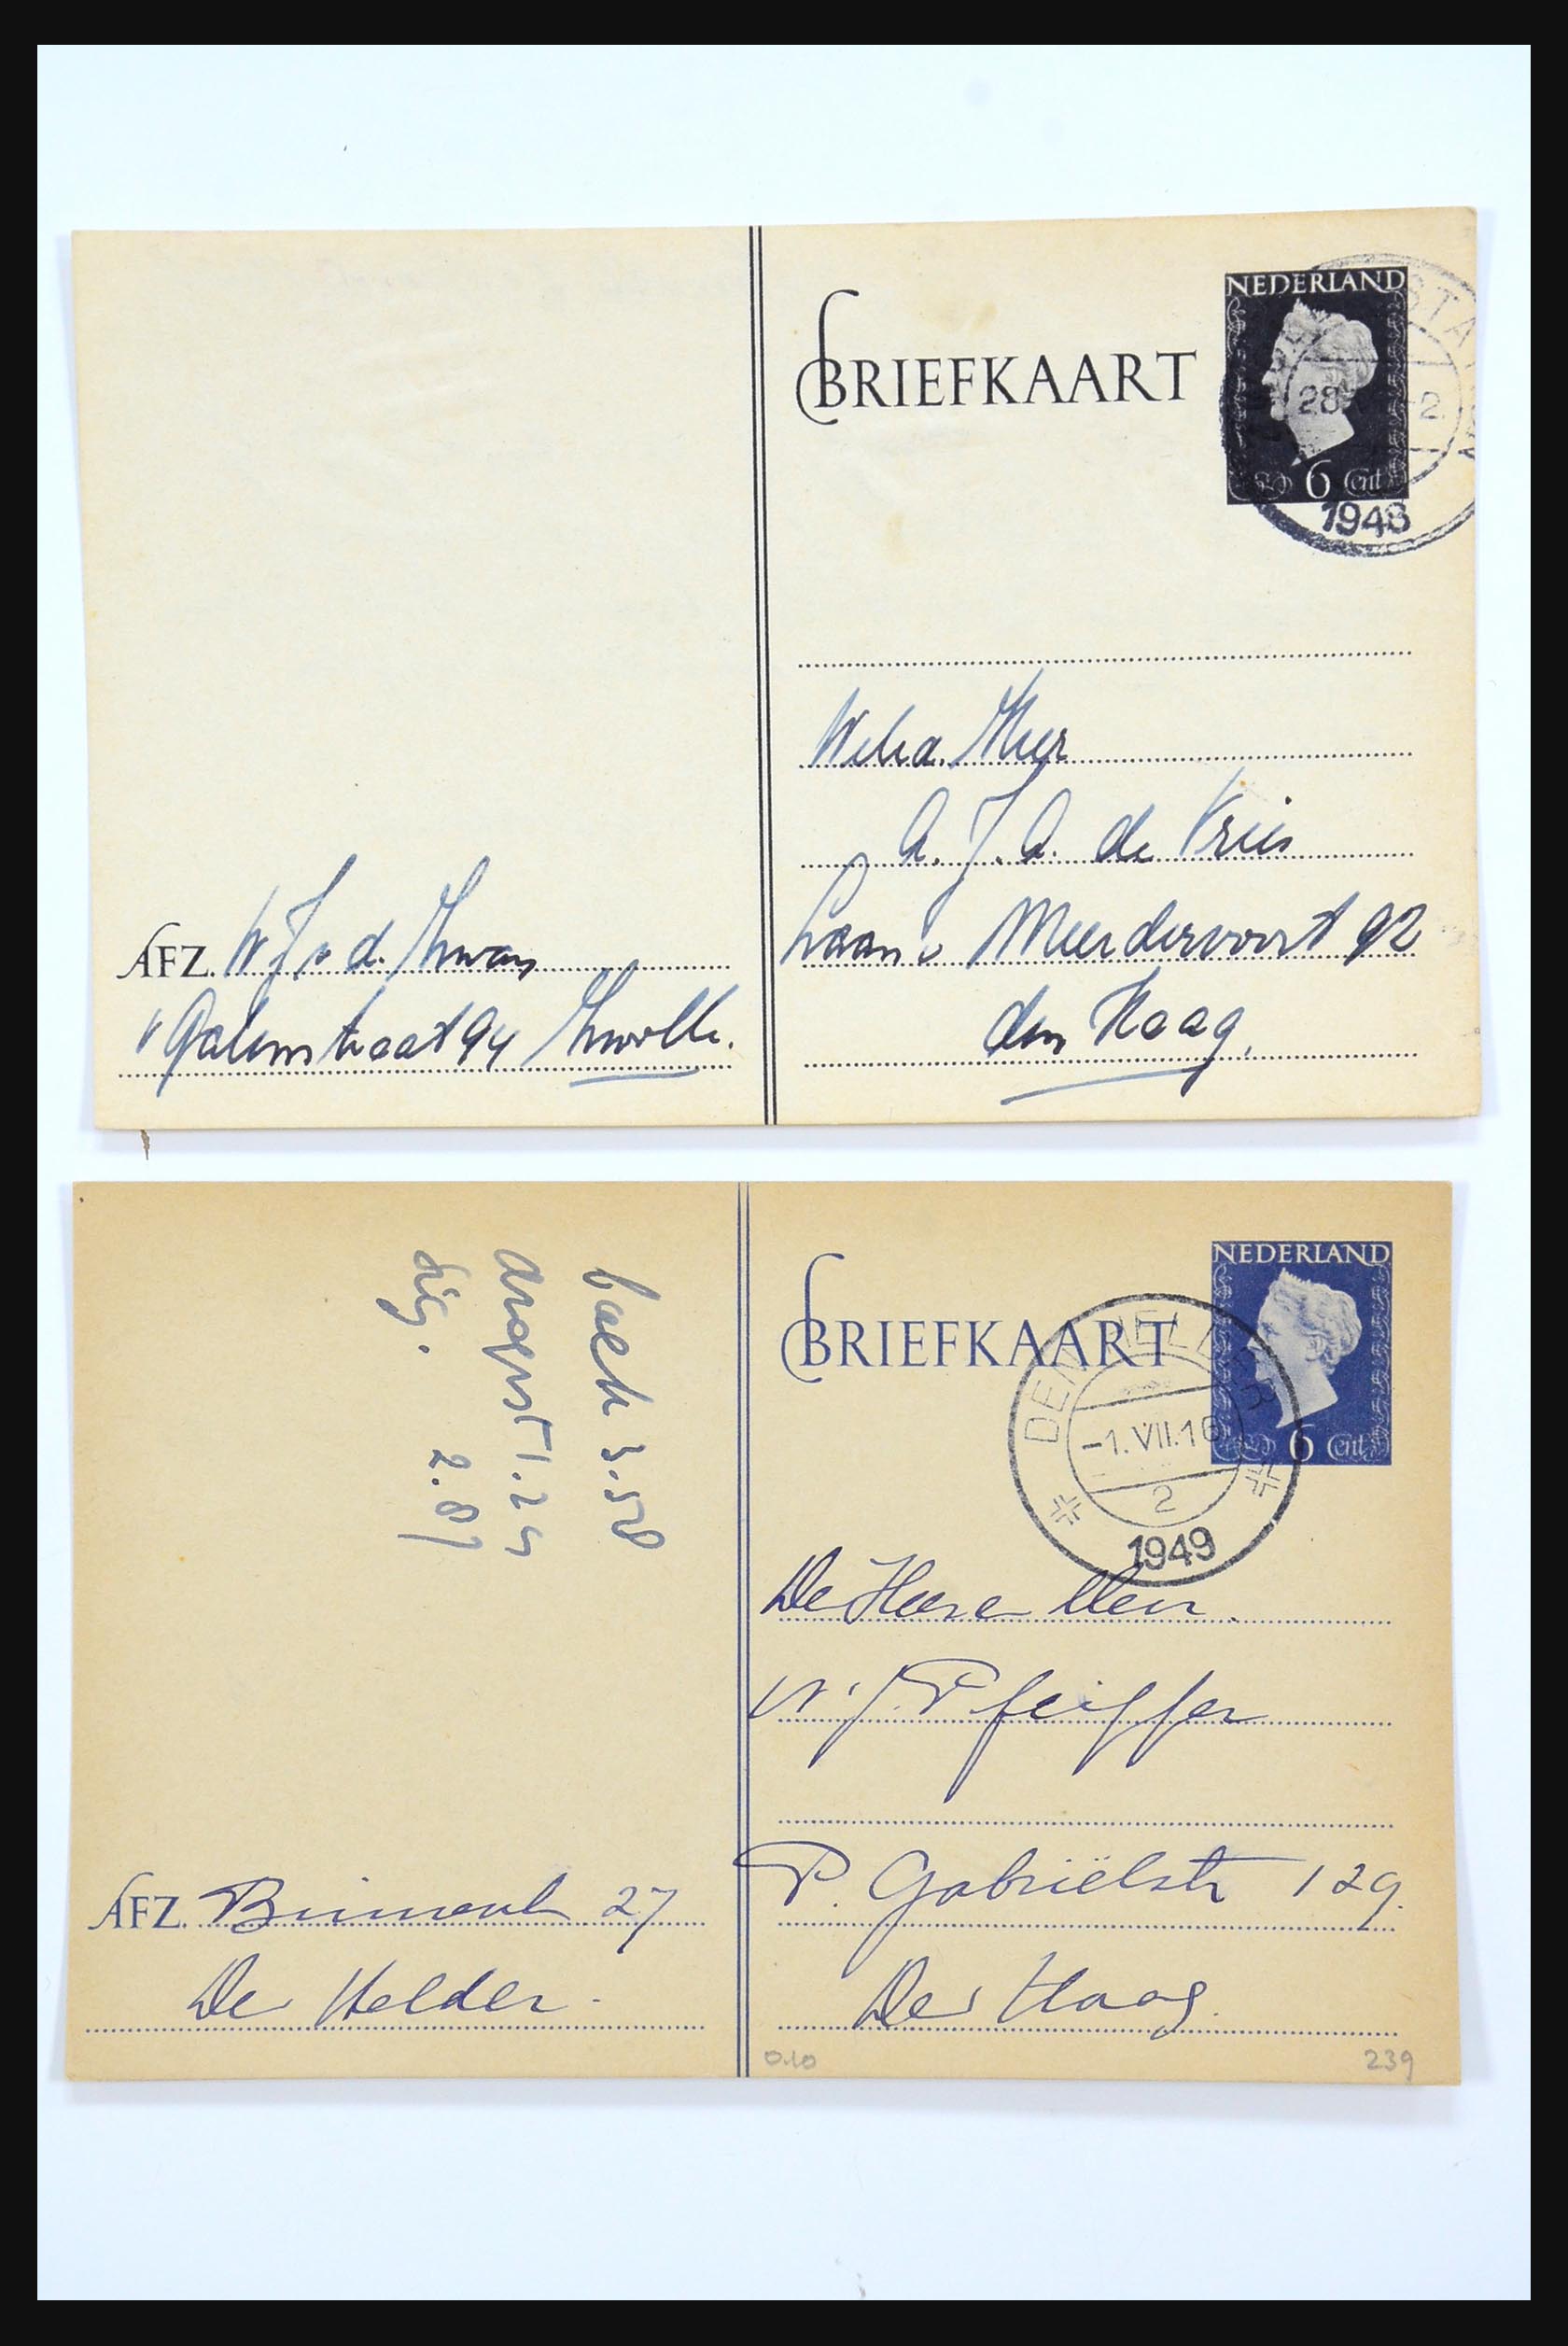 BRIEFKAART
NEDERLAND
6 Cent
28
2
1948
A. J. A. de Vries
Laan v Meerdervoort 92
den Haag.
AFZ. W J v d. Zwan
v Galenstraat 94 Zwolle.
BRIEFKAART
NEDERLAND
6 Cent
DEN HELDER
-1.VII.16
2
1949
De Heere
W. J. Pfeiffer
P. Gabriëlstr 129.
Den Haag.
AFZ. 27
Den Helder.
3.50
1.25
2.87
0.10
239